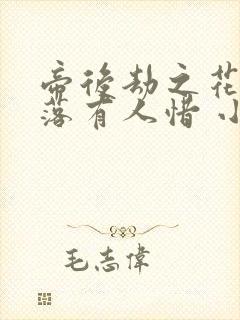 帝後劫之花
落有人惜 小
毛志偉